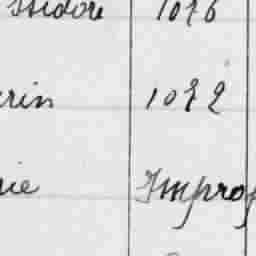 Isidore 1076
rin 1072
rie Improp